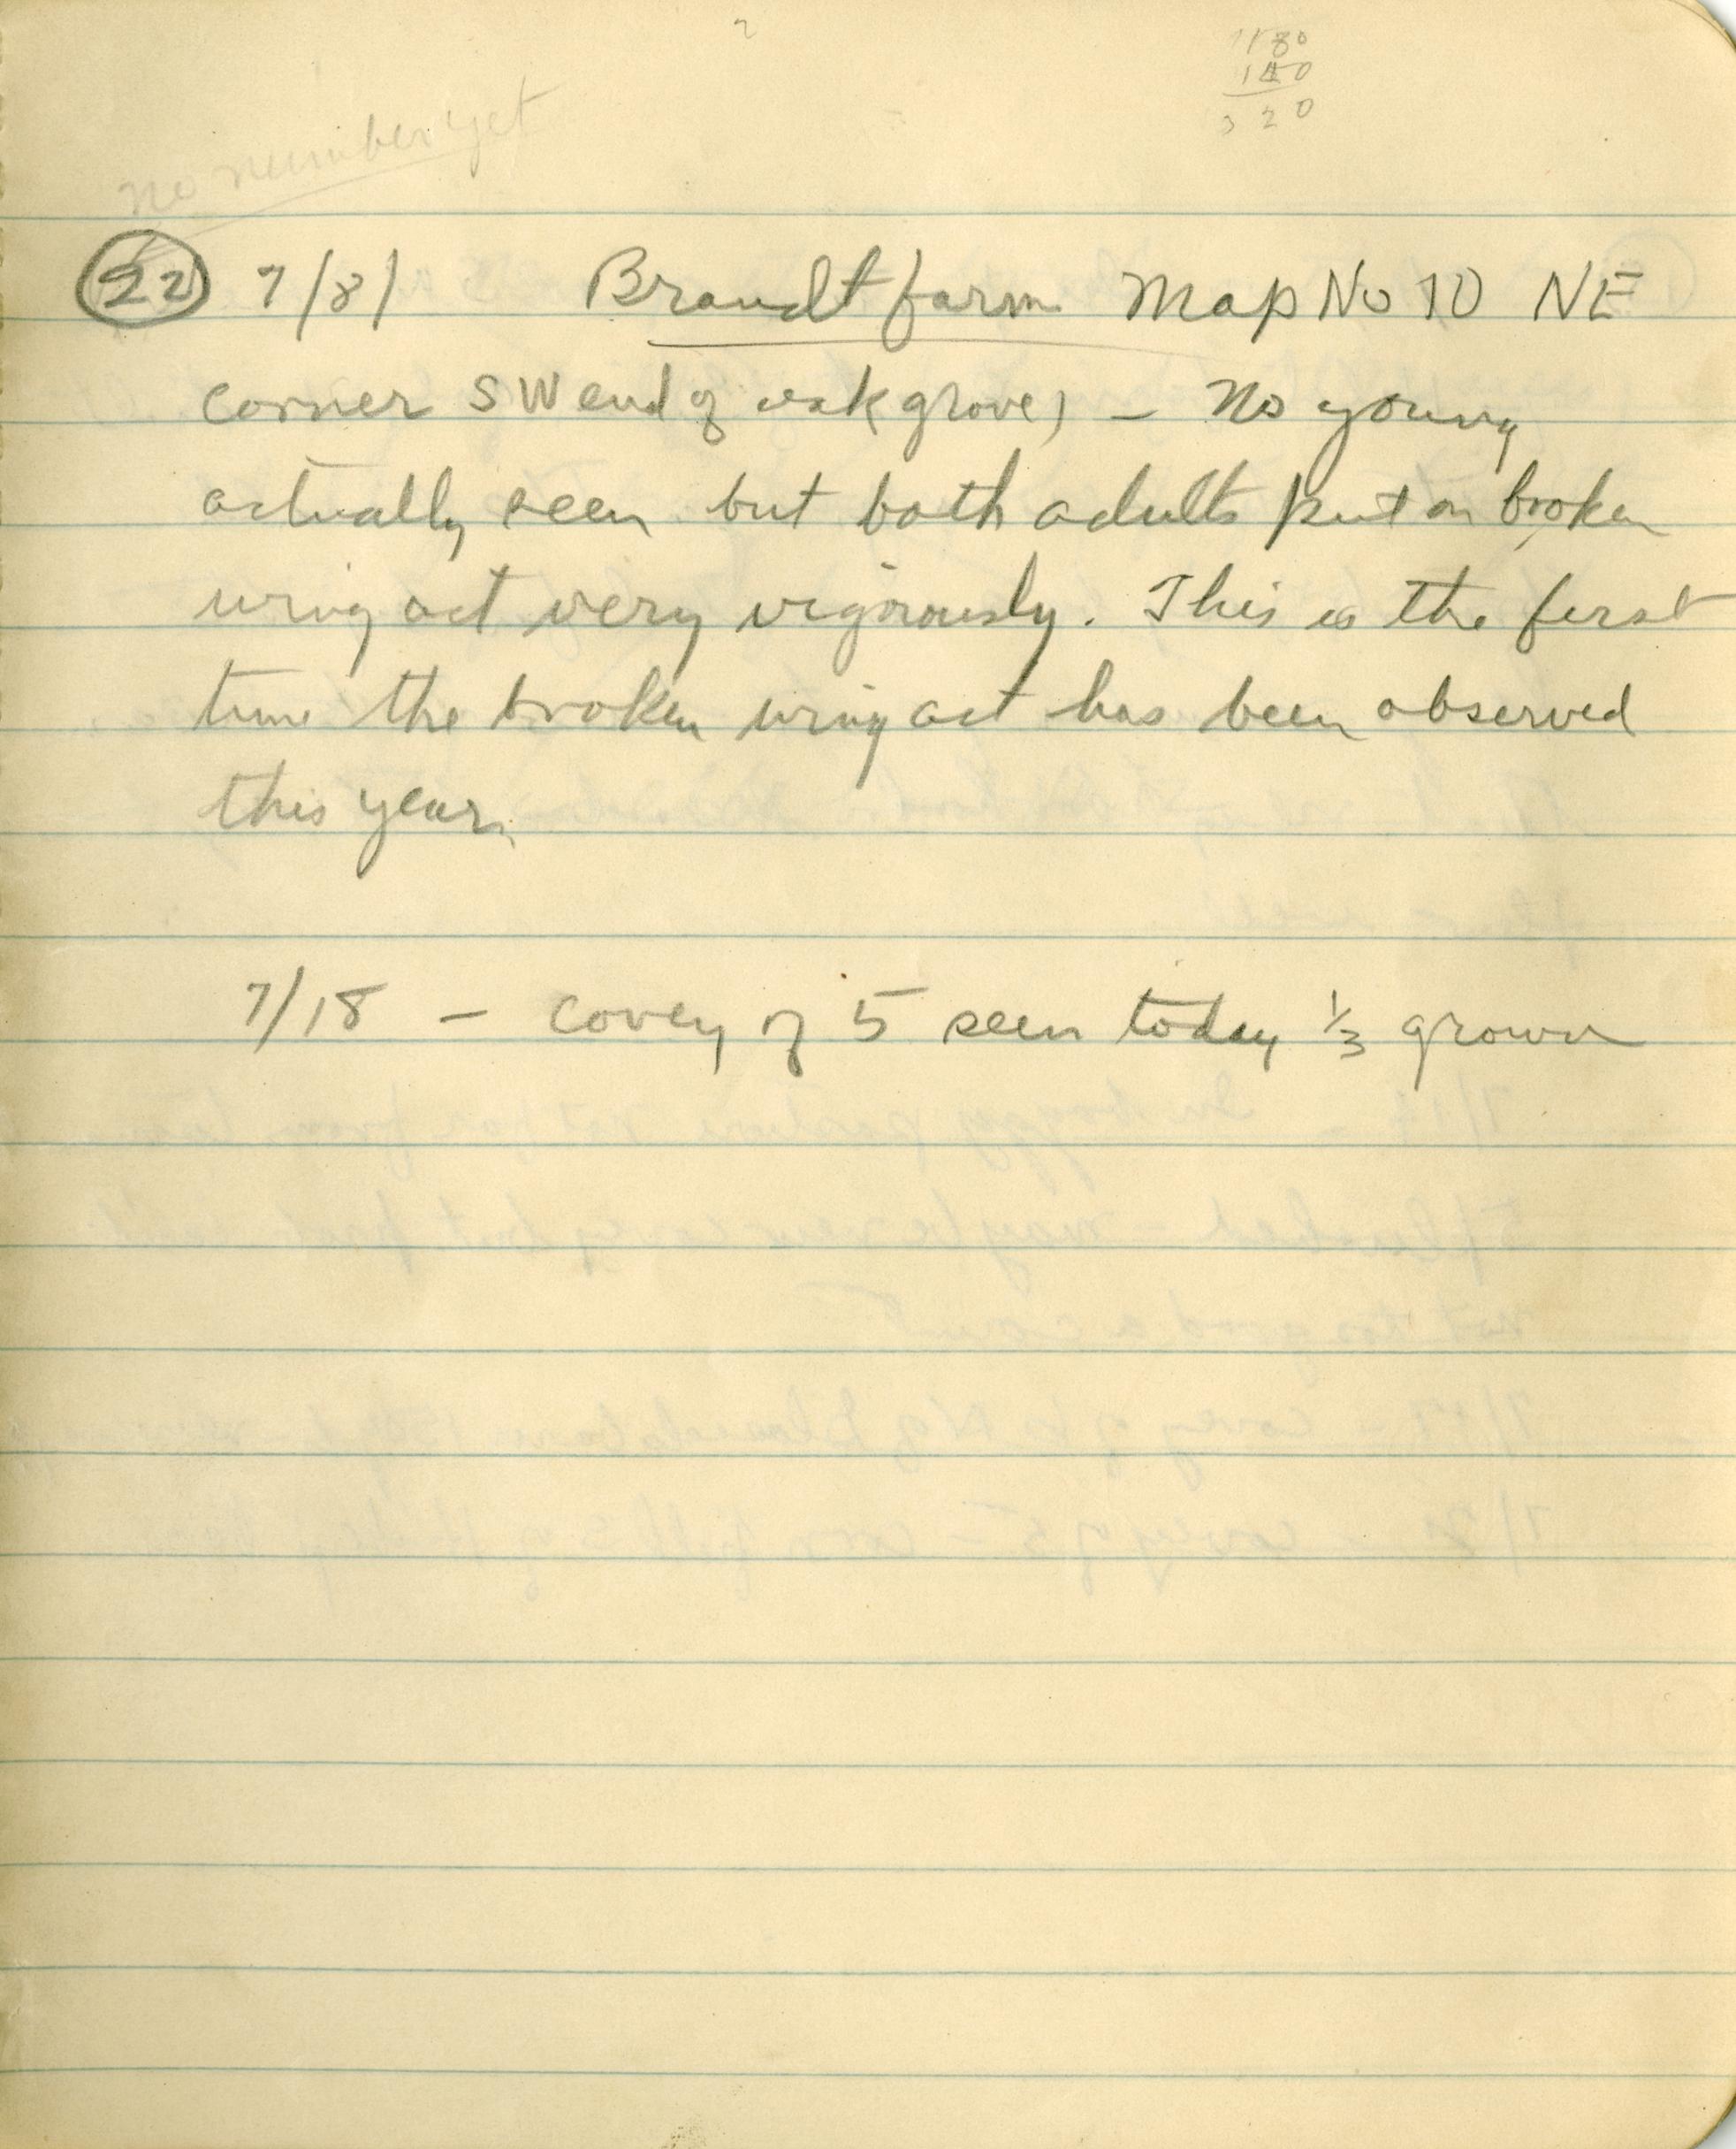 1180
140
320
no number yet
22 7/8/ Brandt farm Map No 10 NE
corner SW end of oak grove) – No young
actually seen but both adults put on broken
wing act very vigorously. This is the first
time the broken wing act has been observed
this year.
7/18 – covey of 5 seen today 1/3 grown